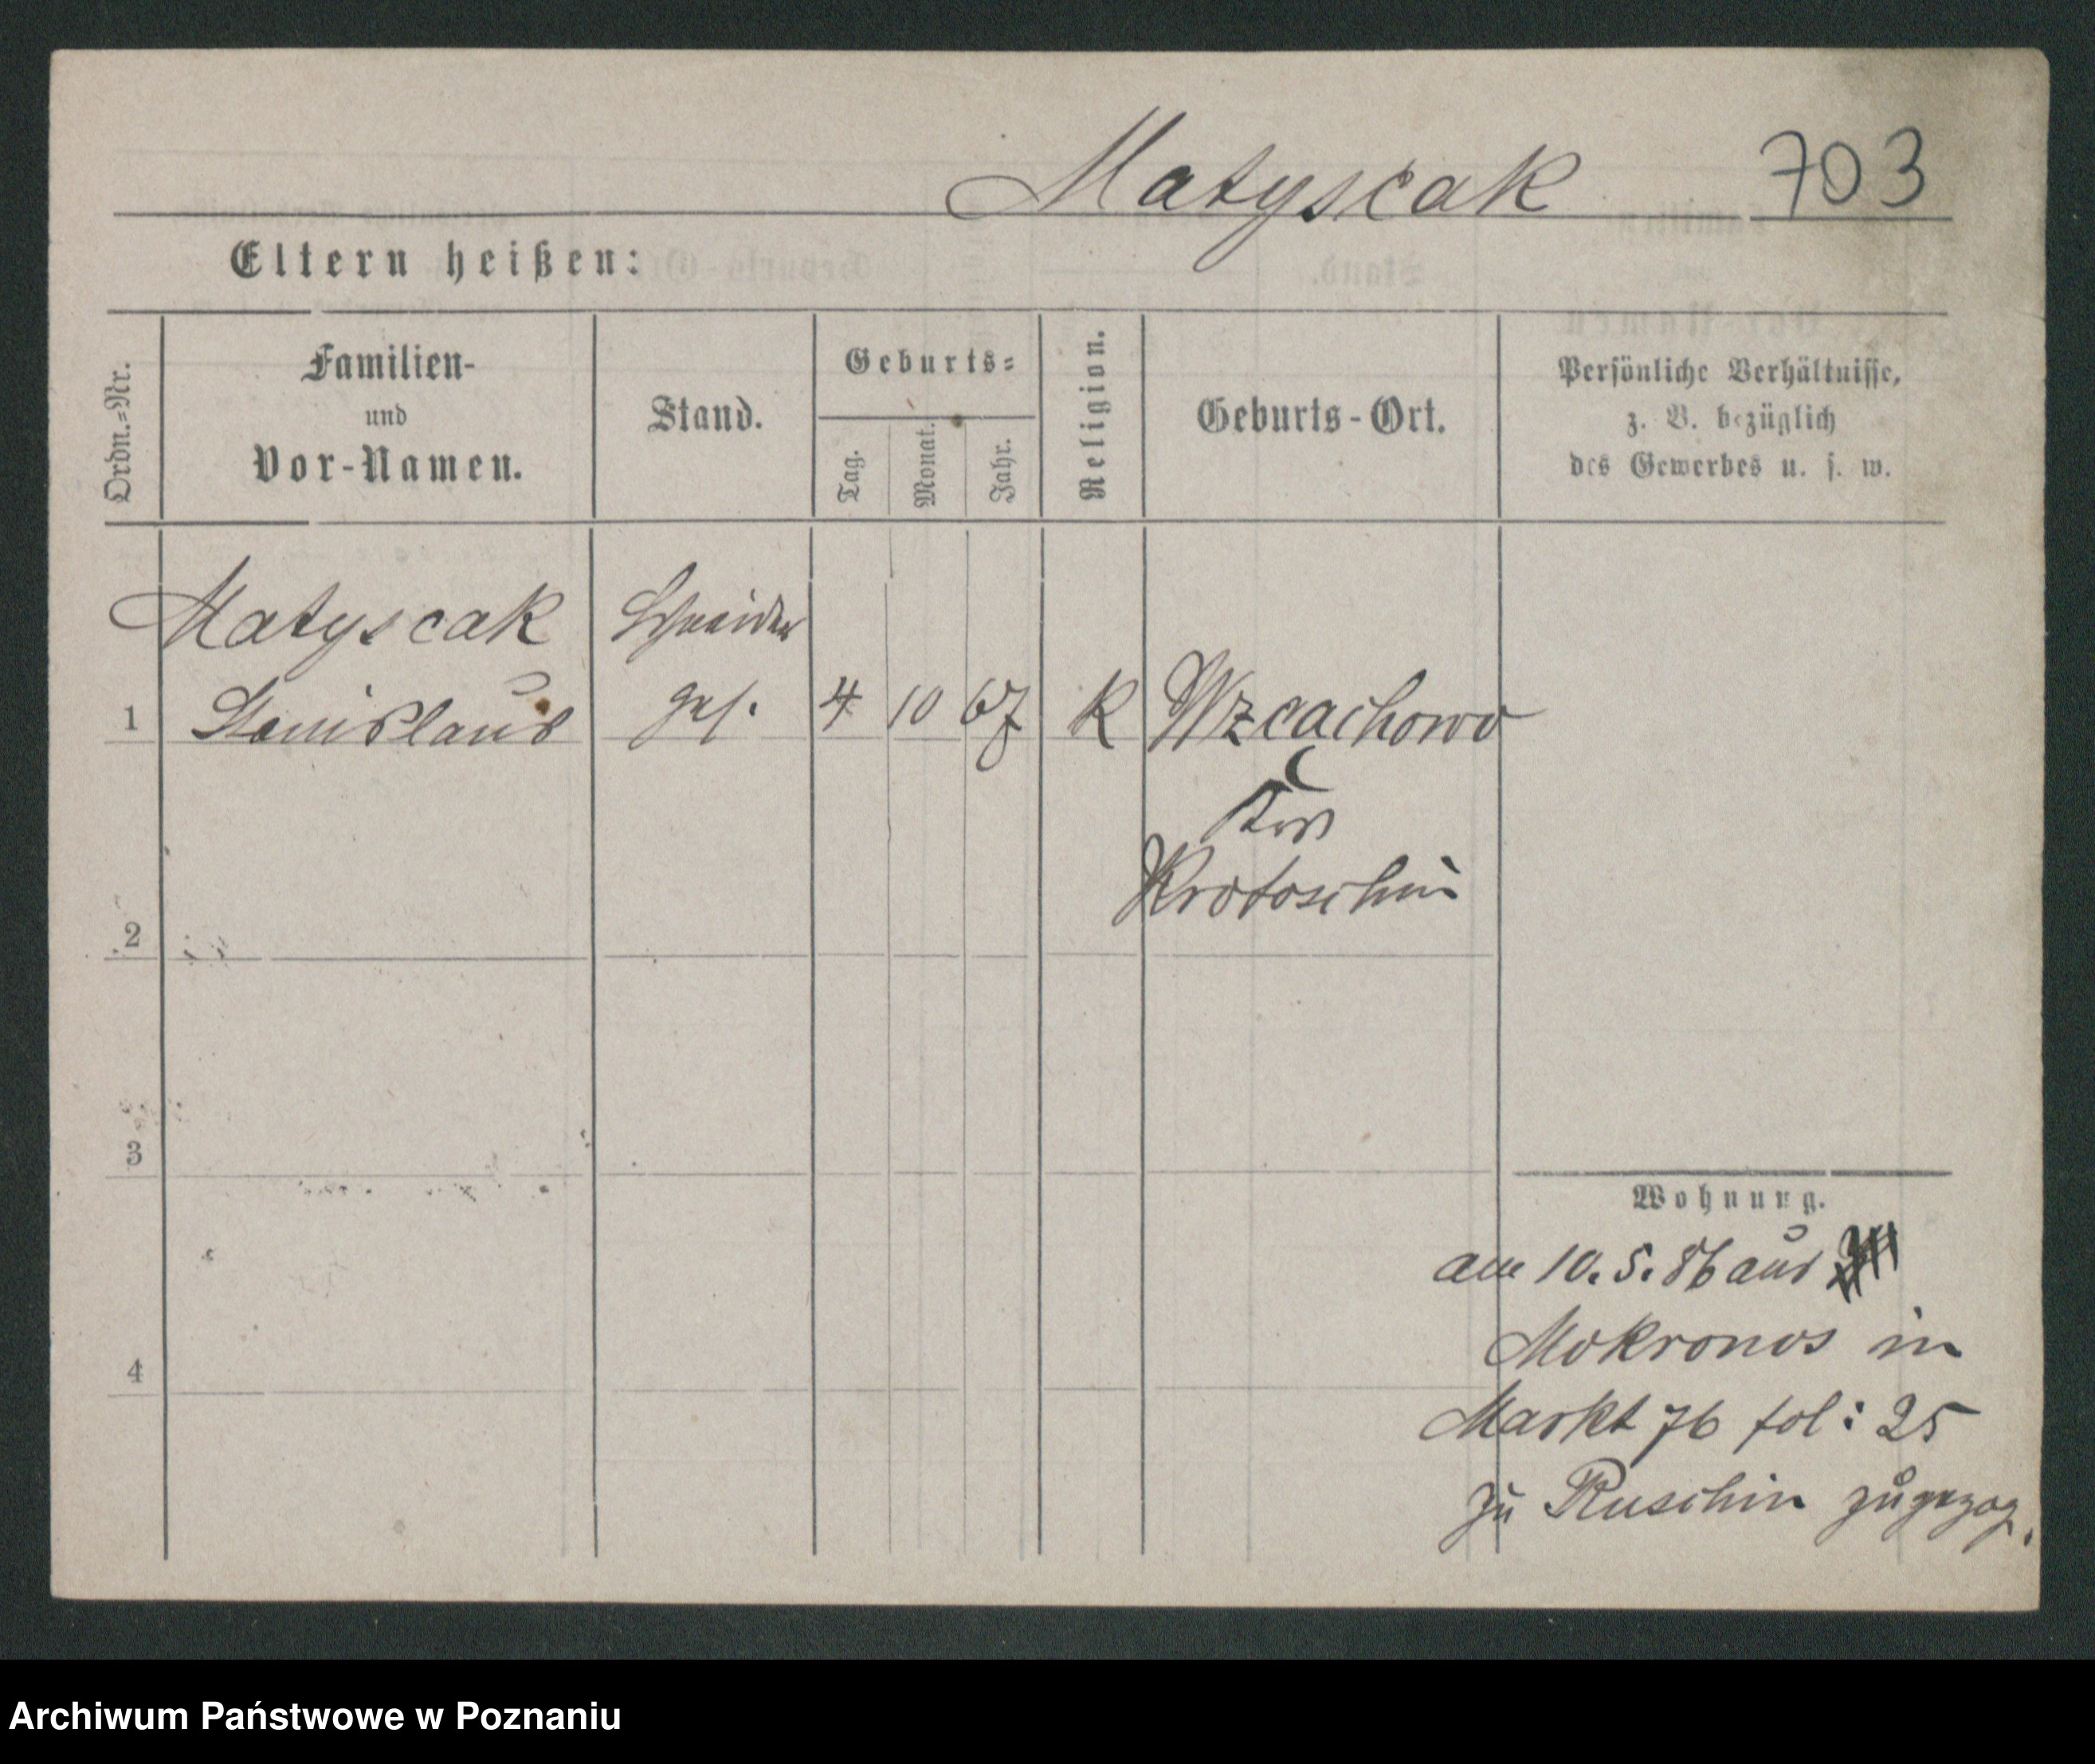 Matyscak 703
Eltern heißen:
Ordn.=Nr.
Familien-
und
Vor-Namen.
Stand.
Geburts=
Tag.
Monat.
Jahr.
Religion.
Geburts-Ort.
Persönliche Verhältnisse,
z. B. bezüglich
des Gewerbes u. s. w.
Matyscak Schneider
1 Stanislaus ges. 4 10 67 K Wzcachowo
Krs
Krotoschin
2
3
Wohnung.
am 10. 5. 86 aus
Mokronos in
4
Markt 76 fol: 25
zu Ruschin zugezog.
Archiwum Państwowe w Poznaniu